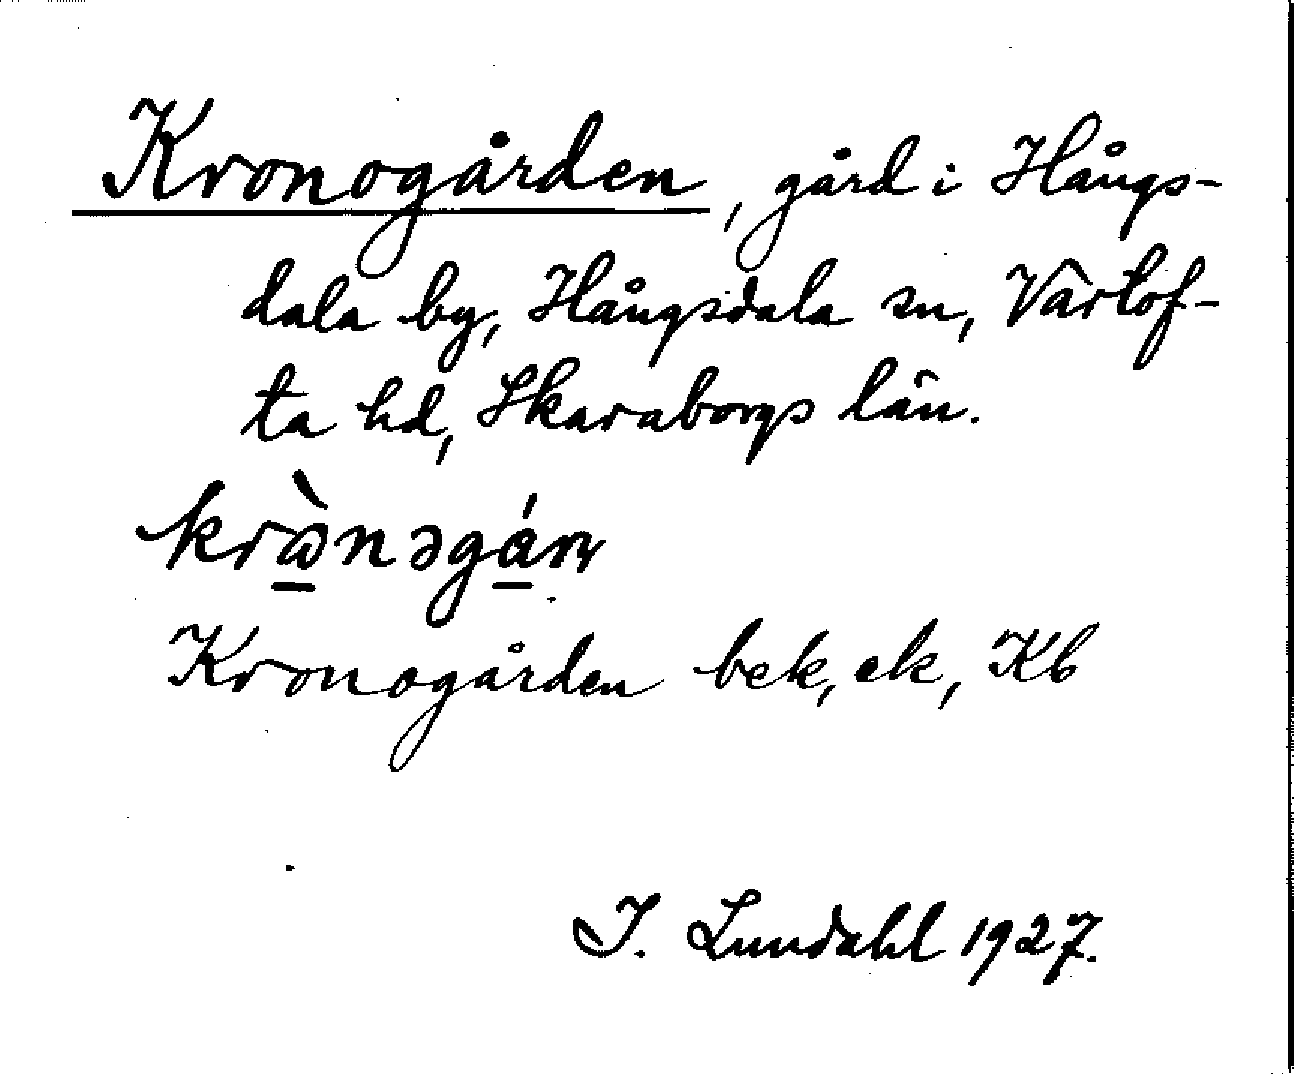 Kronogården, gård i Hångs-
dala by, Hångsdala sn, Vartof-
ta hd, Skaraborgs län.
Kronogården bek, ek, Kb
I. Lundahl 1927.